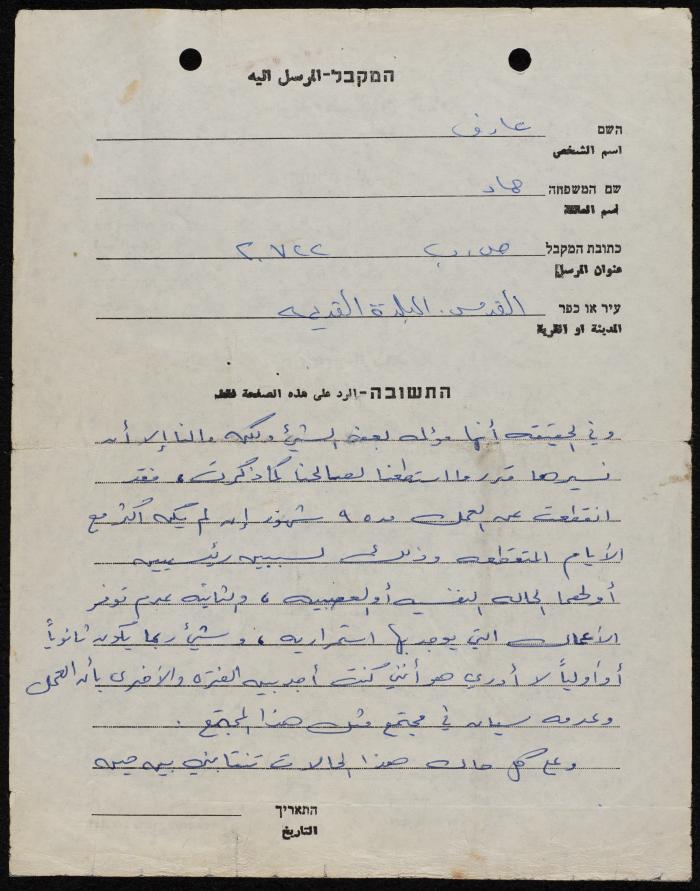 המקבל-المرسل اليه
השם عارف
اسم الشخص
שם המשפחה حماد
اسم العائلة
כתובת המקבל ص.ب ٢٠٧٢٢
عنوان المرسل
עיר או כפר القدس. البلدة القديمه
المدينة او القرية
התשובה-الرد على هذه الصفحة فقط.
وفي الحقيقه أنها مؤلمه بعض الشيئ ولكن مالنا إلا أن
نسيرها قدر ما استطعنا لصالحنا كما ذكرت، فقد
انقطعت عن العمل مده ٩ شهور إن لم يكن اكثر مع
الأيام المتقطعه وذلك لسببين رئيسيين
أولهما الحاله النفسيه أو العصبيه، والثانيه عدم توفر
الأعمال التي يوجد بها استمراريه، وشيئ ربما يكون ثانوياً
أو أولياً لا أدري هو أنني كنت أجد بين الفتره والأخرى بأن العمل
وعدمه سيان في مجتمع مثل هذا المجتمع.
وعلى كل حال هذا الحالات تنتابني بين حين
התאריך
التاريخ